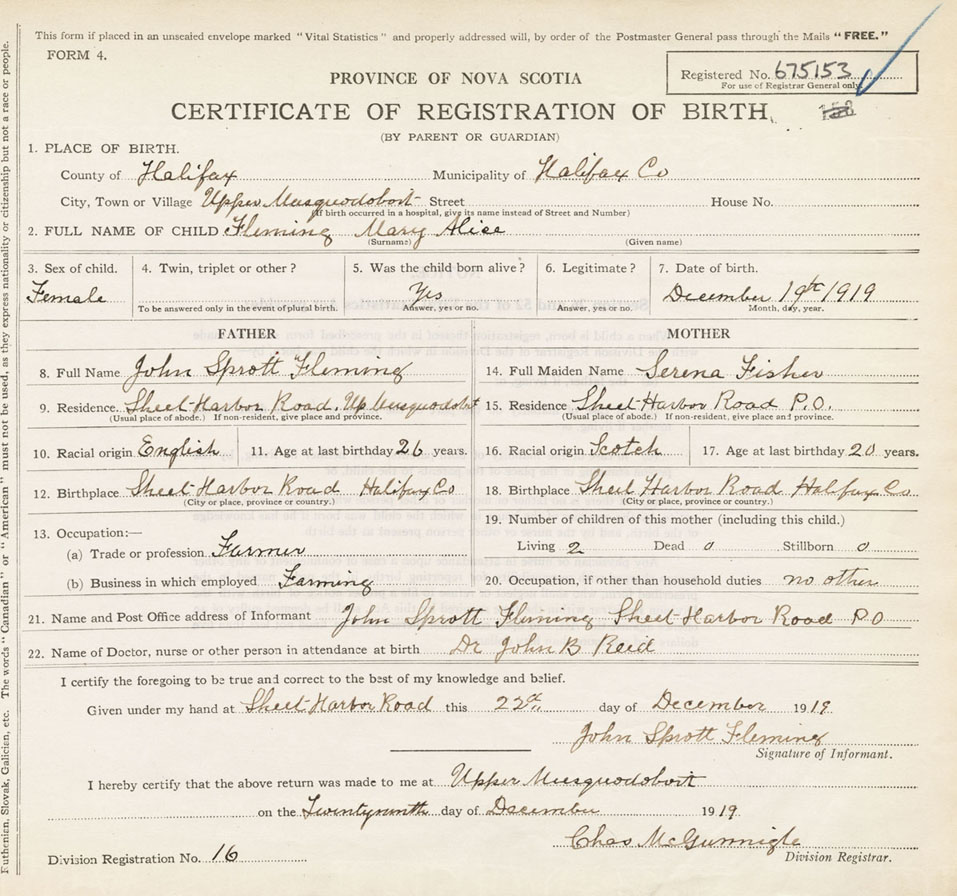 This form if placed in an unsealed envelope marked "Vital Statistics" and properly addressed will, by order of the Postmaster General pass through the Mails "FREE."
FORM 4.
Registered No. 675153
For use of Registrar General only.
PROVINCE OF NOVA SCOTIA
CERTIFICATE OF REGISTRATION OF BIRTH.
(BY PARENT OR GUARDIAN)
1. PLACE OF BIRTH.
County of Halifax Municipality of Halifax Co
City, Town or Village Upper Musquodoboit Street House No.
(If birth occurred in a hospital, give its name instead of Street and Number)
2. FULL NAME OF CHILD Fleming Mary Alice
(Surname) (Given name)
3. Sex of child. 4. Twin, triplet or other? 5. Was the child born alive? 6. Legitimate? 7. Date of birth.
Female Yes December 19th 1919
To be answered only in the event of plural birth. Answer, yes or no. Answer, yes or no. Month, day, year.
FATHER MOTHER
8. Full Name John Sprott Fleming 14. Full Maiden Name Serena Fisher
9. Residence Sheet Harbor Road, Up Musquodobt 15. Residence Sheet Harbor Road P.O.
(Usual place of abode.) If non-resident, give place and province. (Usual place of abode.) If non-resident, give place and province.
10. Racial origin English 11. Age at last birthday 26 years. 16. Racial origin Scotch 17. Age at last birthday 20 years.
12. Birthplace Sheet Harbor Road Halifax Co 18. Birthplace Sheet Harbor Road Halifax Co
(City or place, province or country.) (City or place, province or country.)
13. Occupation:— 19. Number of children of this mother (including this child.)
(a) Trade or profession Farmer Living 2 Dead 0 Stillborn 0
(b) Business in which employed Farming 20. Occupation, if other than household duties no other
21. Name and Post Office address of Informant John Sprott Fleming Sheet Harbor Road P O
22. Name of Doctor, nurse or other person in attendance at birth Dr John B Reid
I certify the foregoing to be true and correct to the best of my knowledge and belief.
Given under my hand at Sheet Harbor Road this 22th day of December 1919
John Sprott Fleming
Signature of Informant.
I hereby certify that the above return was made to me at Upper Musquodoboit
on the Twentyninth day of December 1919
Chas McGunnigle
Division Registrar.
Division Registration No. 16
Ruthenian, Slovak, Galician, etc. The words "Canadian" or "American" must not be used, as they express nationality or citizenship but not a race or people.